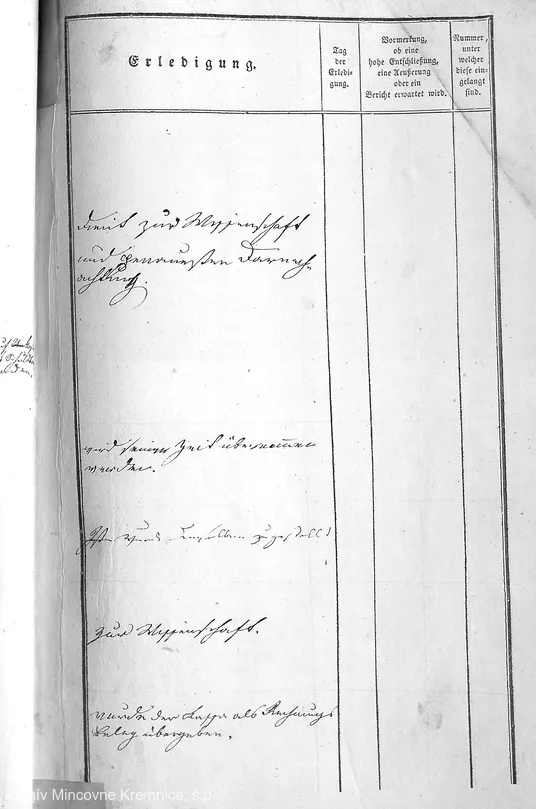 Erledigung.
Tag
der
Erledi-
gung.
Vormerkung,
ob eine
hohe Entschließung,
eine Aeußerung
oder ein
Bericht erwartet wird.
Nummer,
unter
welcher
diese ein-
gelangt
sind.
dient zur Wissenschaft
und genauesten Darnach-
achtung.
wird seiner Zeit übernommen
werden.
wurde demselben zugestellt
Zur Wissenschaft.
wurde der Kassa als Rechnungs
beleg übergeben.
Archív Mincovne Kremnica, š.p.